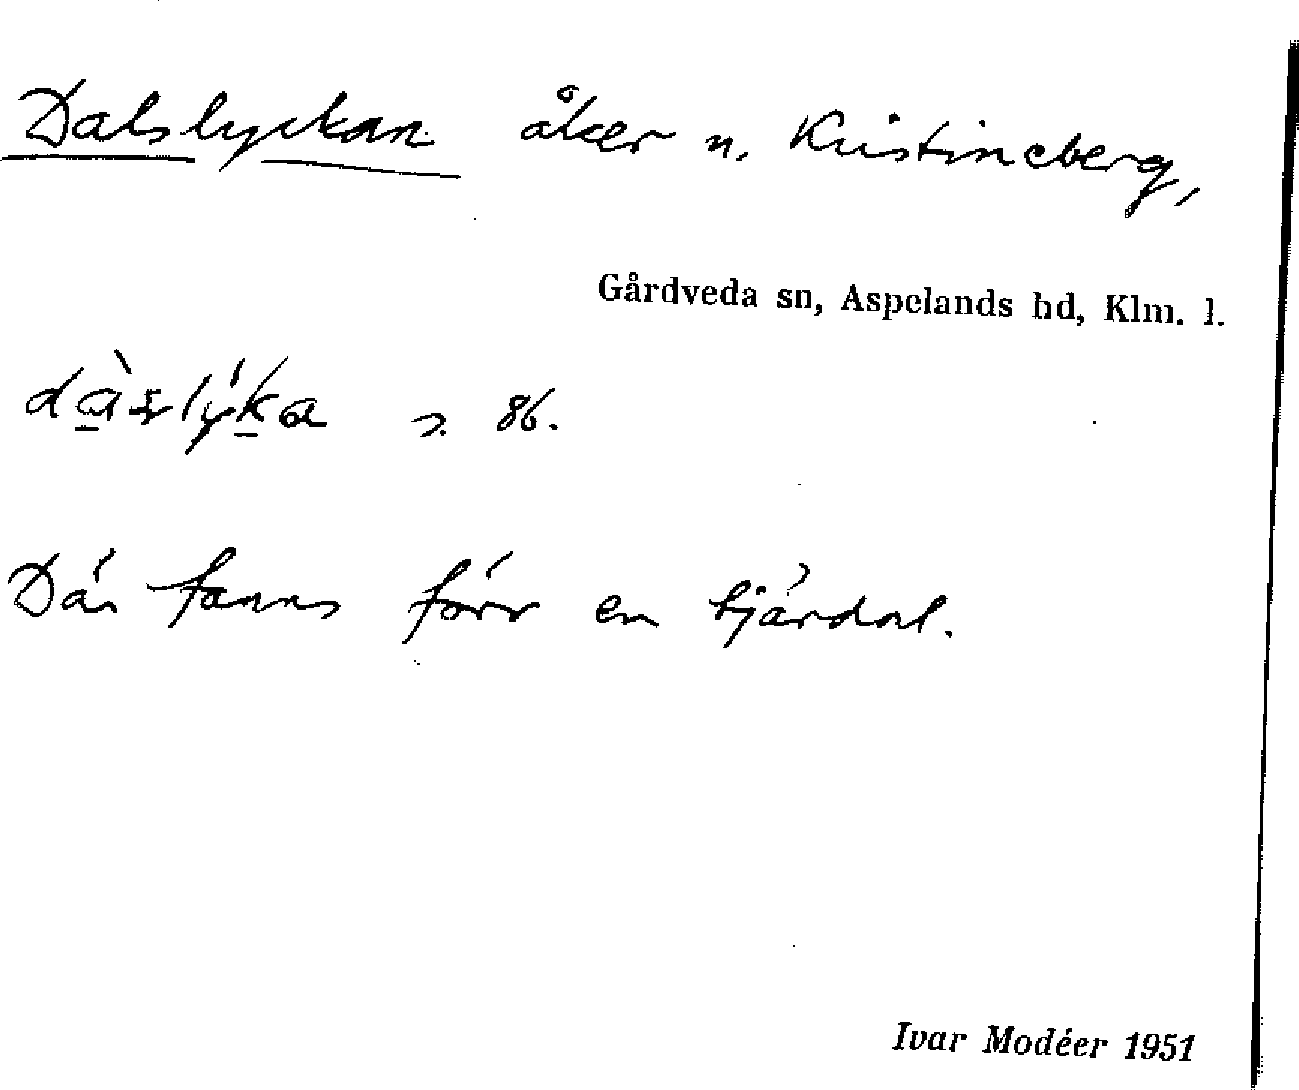 Dalslyckan åker n. Kristineberg,
Gårdveda sn, Aspelands hd, Klm. l.
s. 86.
Där fanns förr en tjärdal.
Ivar Modéer 1951